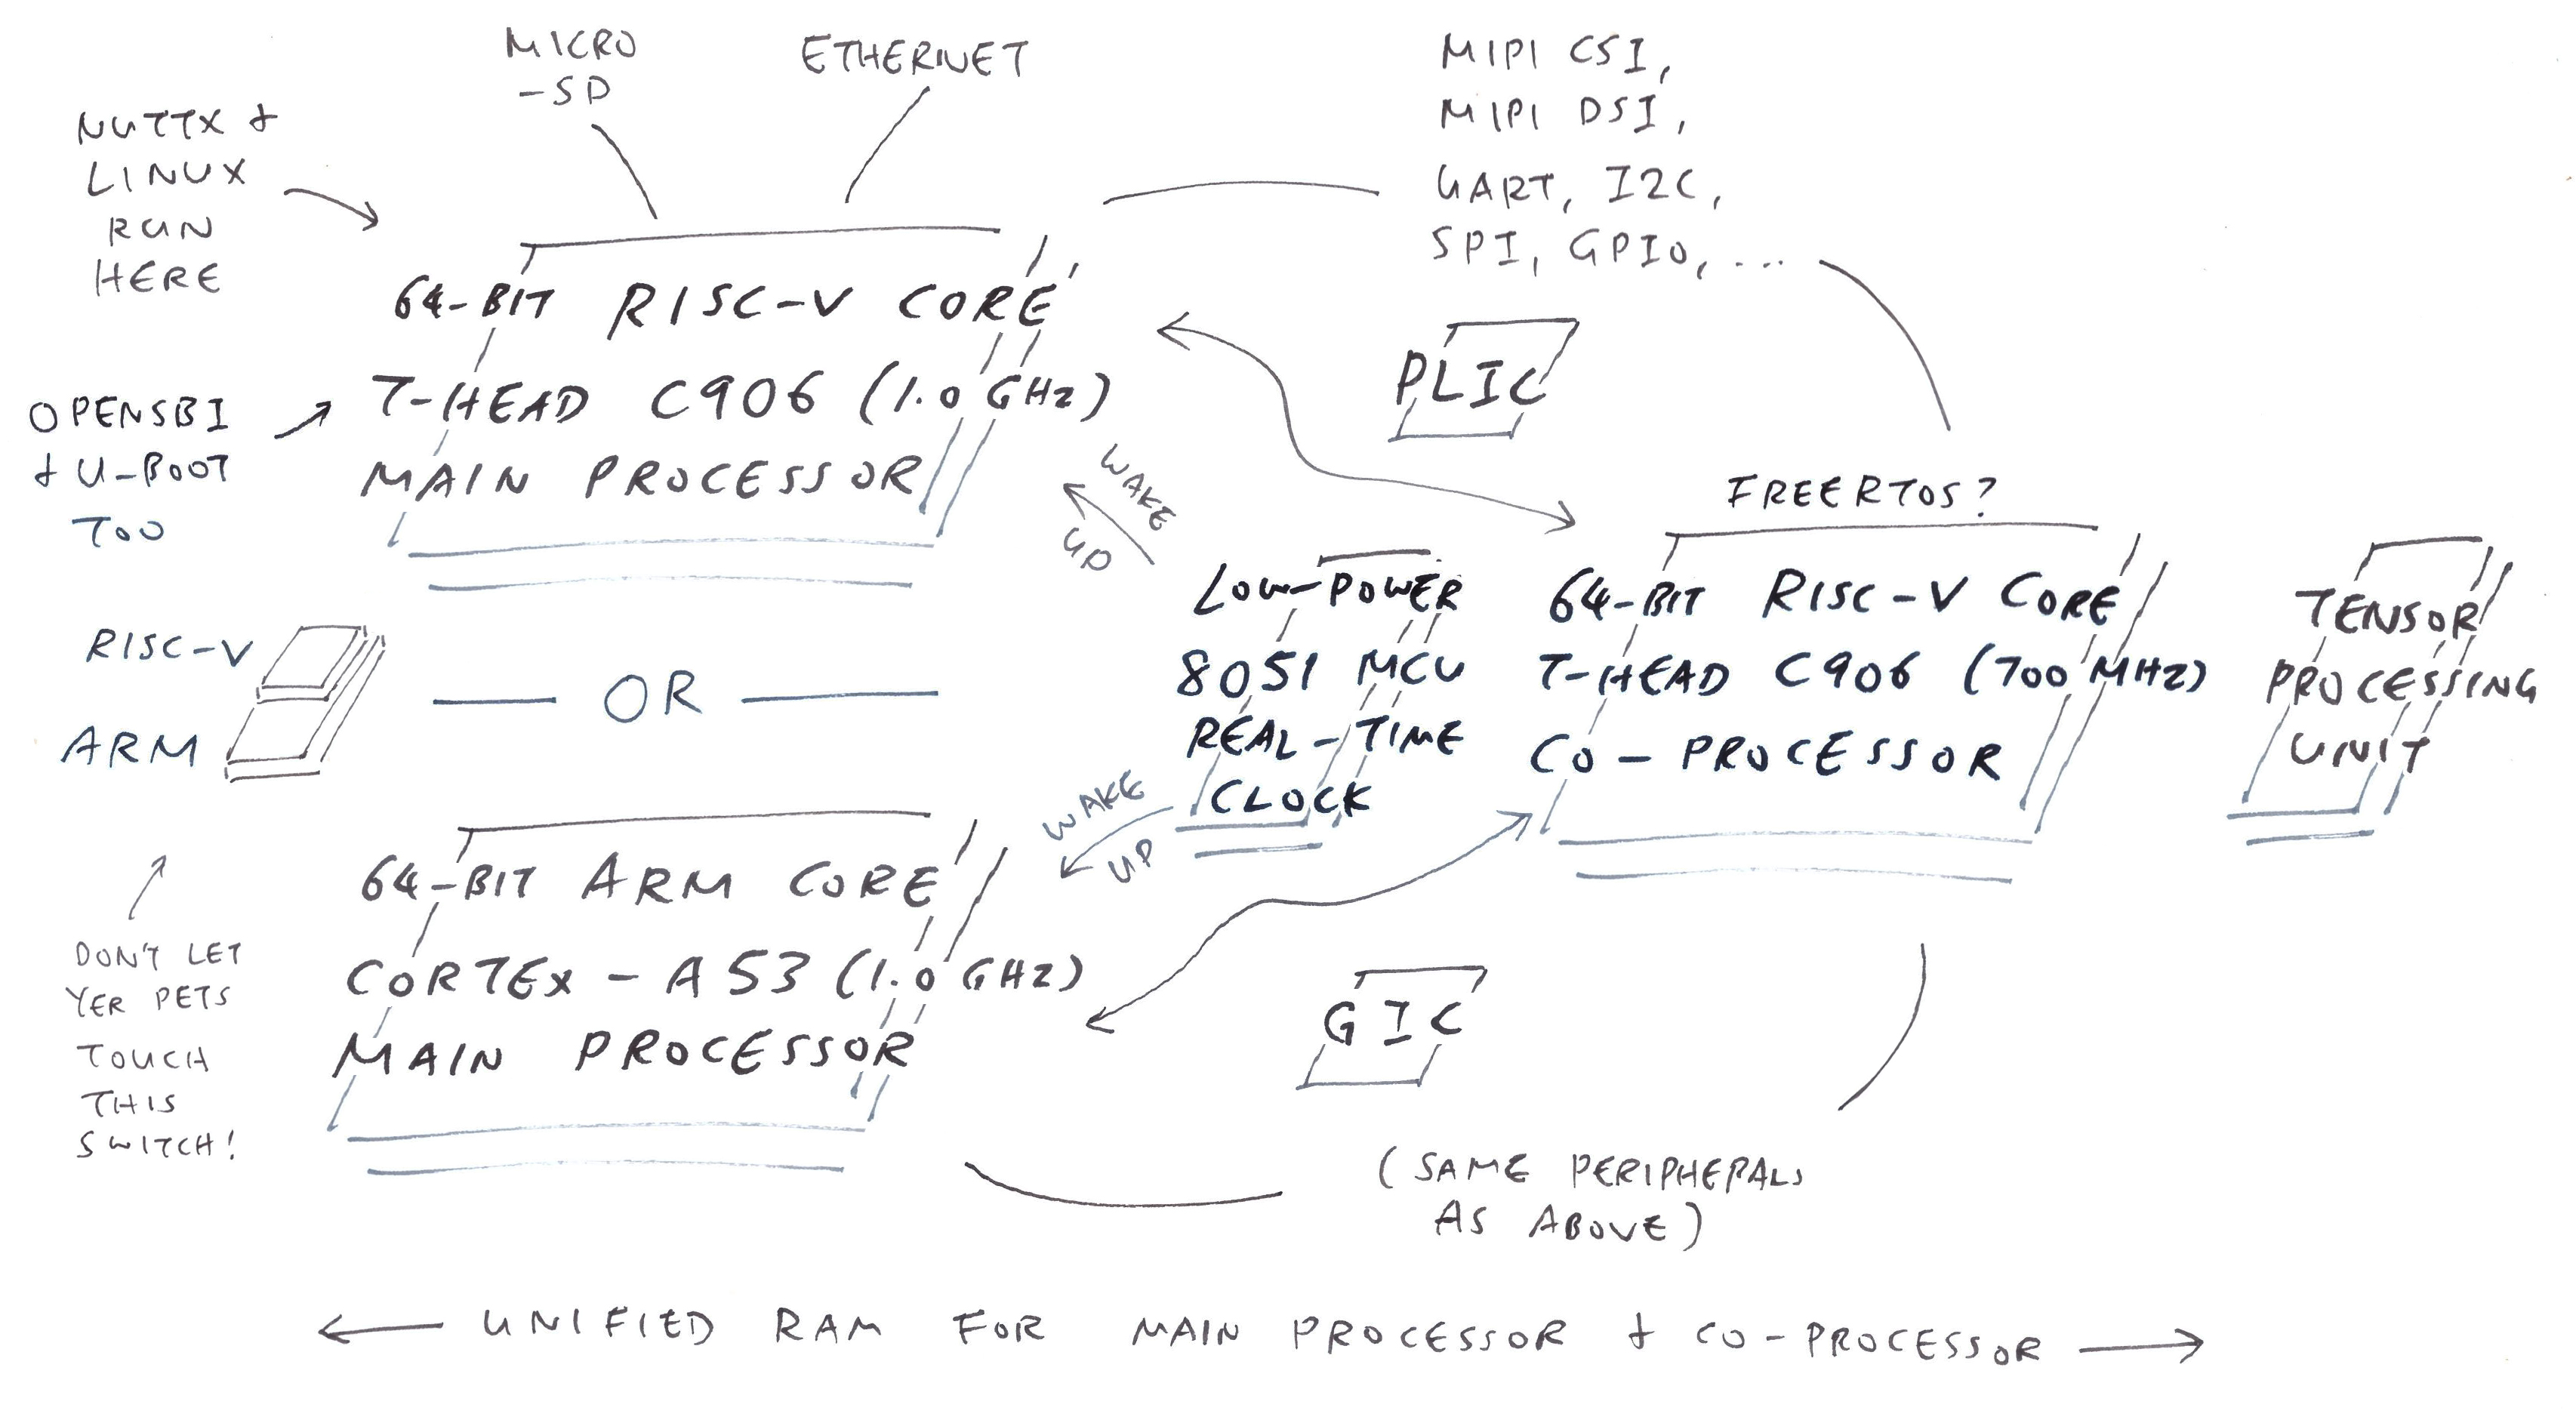 MICRO
-SD
ETHERNET
MIPI CSI,
MIPI DSI,
UART, I2C,
SPI, GPIO, ...
NUTTX +
LINUX
RUN
HERE
64-BIT RISC-V CORE
T-HEAD C906 (1.0 GHz)
MAIN PROCESSOR
OPENSBI
+ U-BOOT
TOO
PLIC
WAKE
UP
FREERTOS?
LOW-POWER
8051 MCU
REAL-TIME
CLOCK
64-BIT RISC-V CORE
T-HEAD C906 (700 MHZ)
CO-PROCESSOR
TENSOR
PROCESSING
UNIT
RISC-V
ARM
OR
WAKE
UP
64-BIT ARM CORE
CORTEX-A53 (1.0 GHZ)
MAIN PROCESSOR
DON'T LET
YER PETS
TOUCH
THIS
SWITCH!
GIC
(SAME PERIPHERALS
AS ABOVE)
UNIFIED RAM FOR MAIN PROCESSOR + CO-PROCESSOR